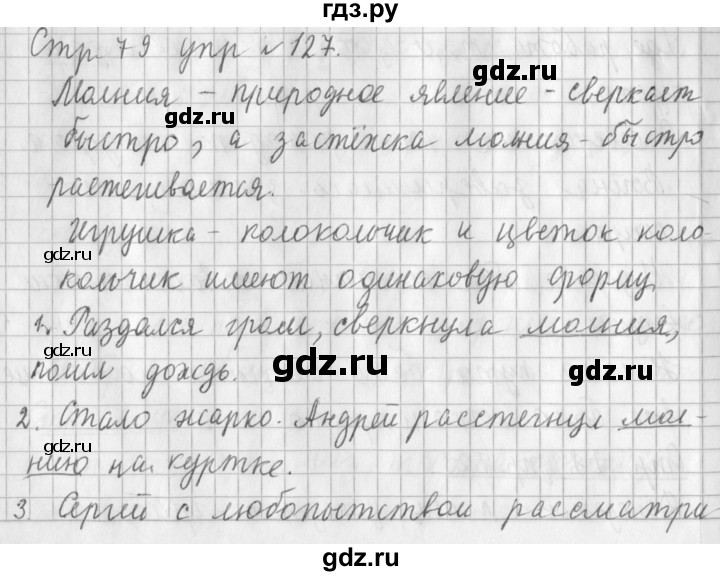 гдз.ру
Стр 79 упр № 127.
gdz.ru
Молния - природное явление - сверкает
gdz.ru
быстро, а застёжка молния - быстро
растегивается.
Игрушка - колокольчик и цветок коло-
gdz.ru
кольчик имеют одинаковую форму
1. Раздался гром, сверкнула молния,
gdz.ru
gdz.ru
пошл дождь.
2. Стало жарко. Андрей расстегнул мол-
gdz.ru
нию на куртке.
3. Сергей с любопытством рассматри
gdz.ru
gdz.ru